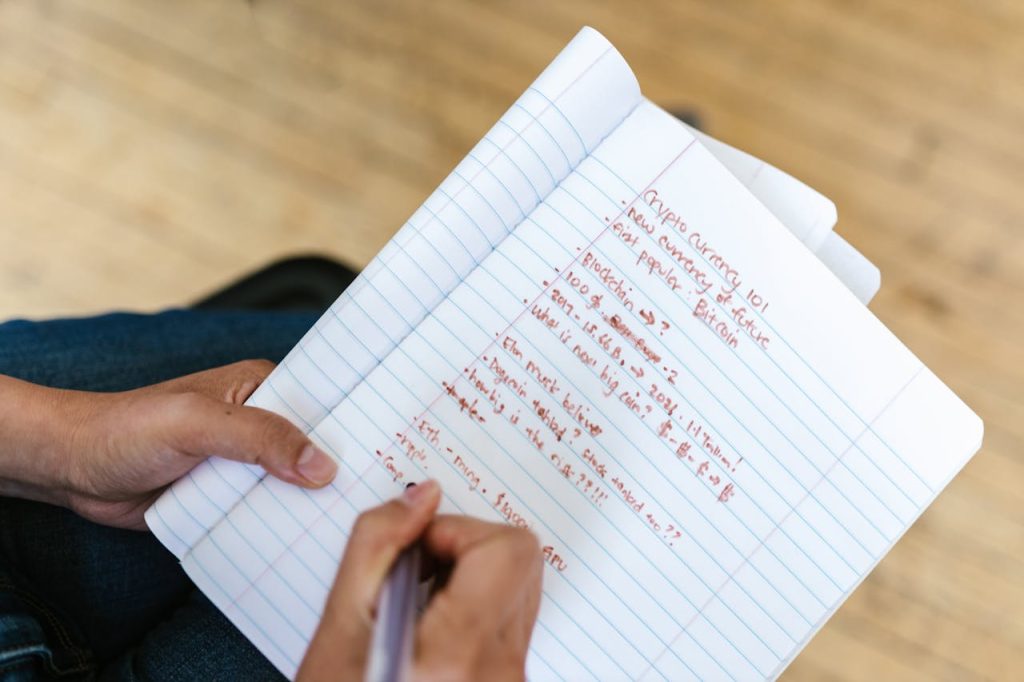 Crypto Currency 101
- new currency of future
- first popular : Bitcoin
- Blockchain → ?
- 100 of
- 2017 - 15.66B. → 2021 1.1 Trillion!
- What is next big coin? $ - B - $ → B
- Elon musk believer
- Dogecoin tanked? stock tanked too??
- how big is the risk??!!!
- Eth. - mining. GPU
- ripple.